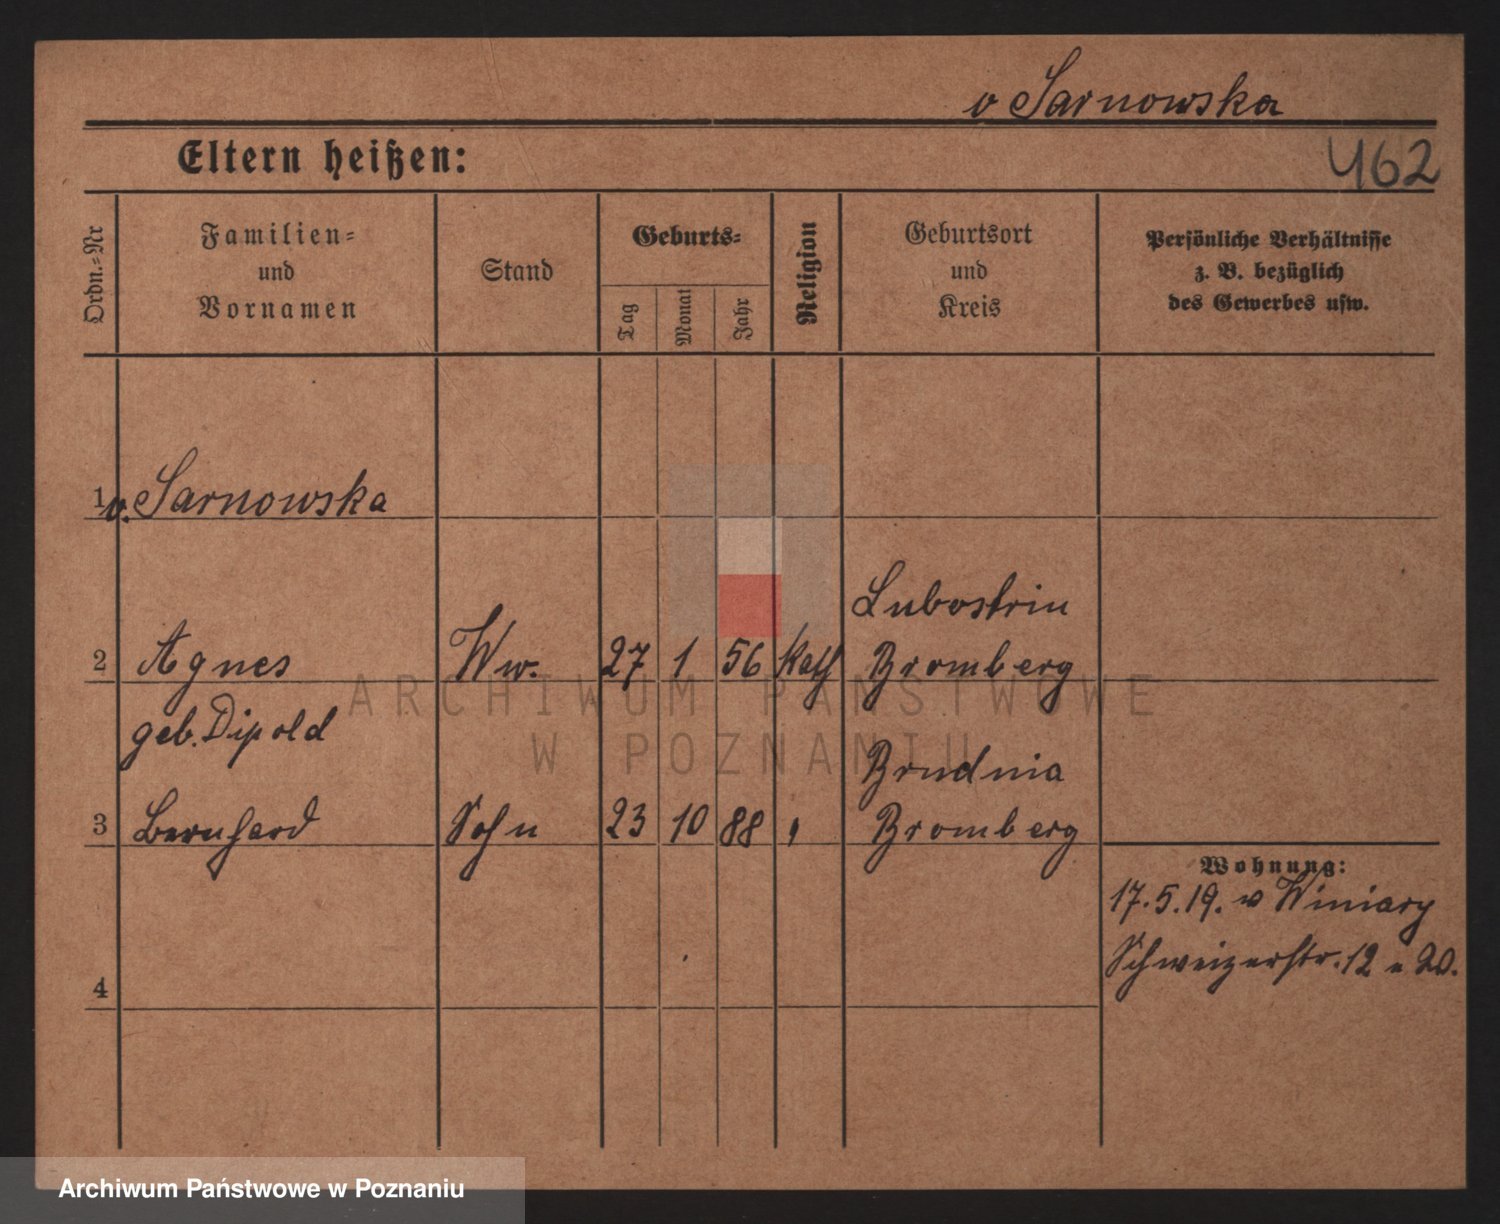 v Sarnowska
Eltern heißen:
462
Ordn.=Nr
Familien=
und
Vornamen
Stand
Geburts=
Tag
Monat
Jahr
Religion
Geburtsort
und
Kreis
Persönliche Verhältnisse
z. B. bezüglich
des Gewerbes usw.
1 v. Sarnowska
Lubostrin
2 Agnes Ww. 27 1 56 Kath Bromberg
geb. Dipold
Brudnia
3 Bernhard Sohn 23 10 88 " Bromberg
Wohnung:
17.5.19. w Winiary
Schweizerstr. 12 20.
4
ARCHIWUM PAŃSTWOWE
W POZNANIU
Archiwum Państwowe w Poznaniu